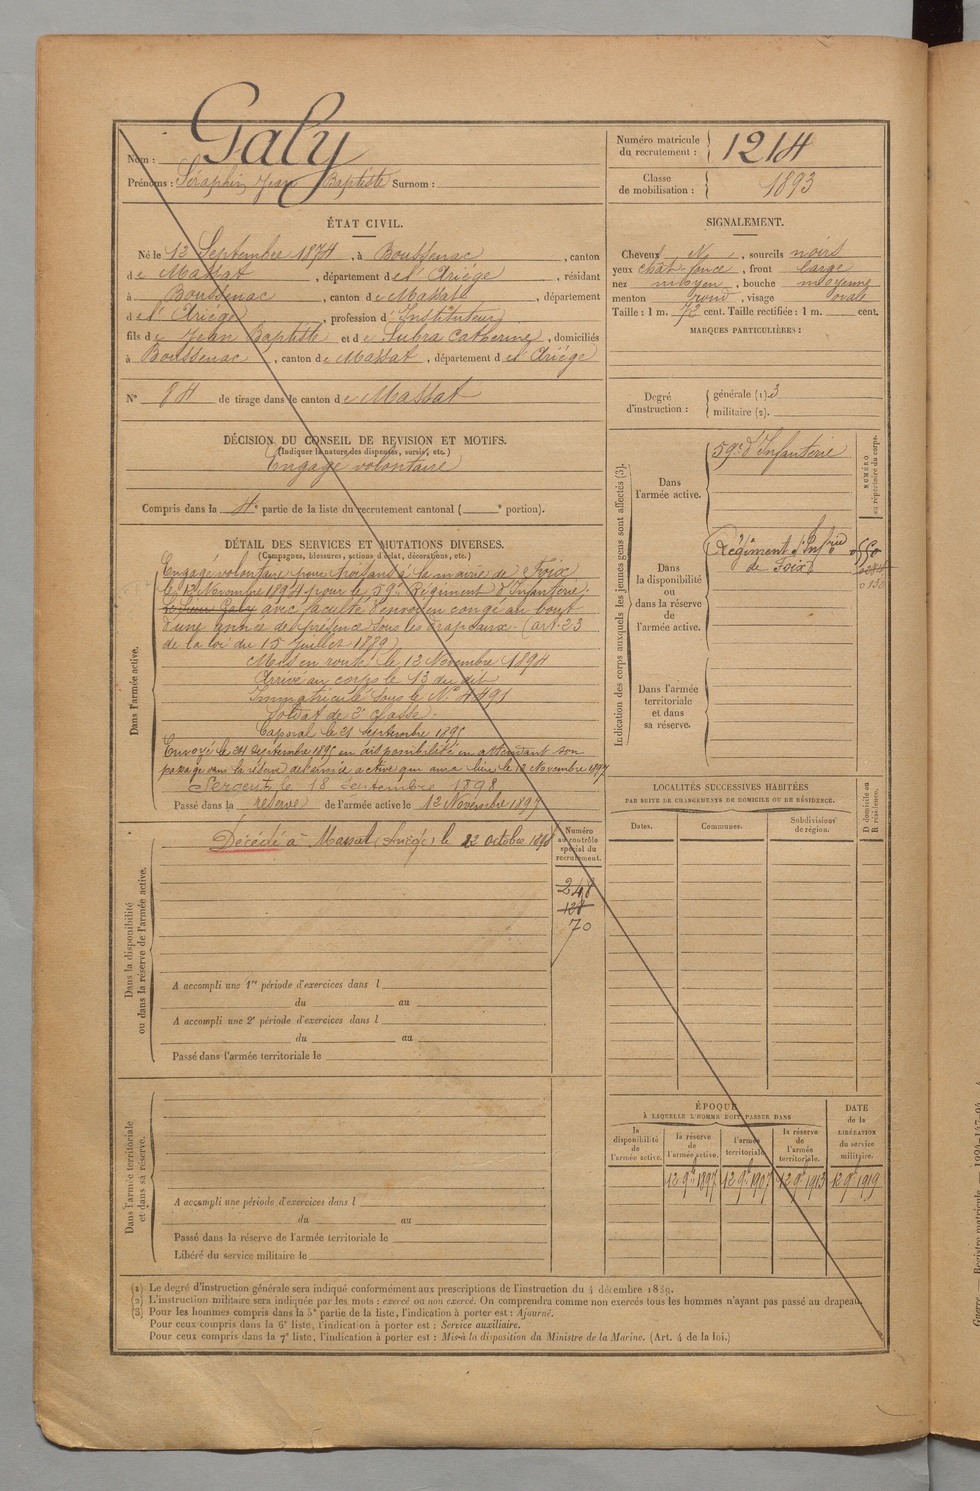 Nom : Galy
Prénoms : Séraphin Jean Baptiste Surnom :
ÉTAT CIVIL.
Né le 13 Septembre 1874, à Boussenac, canton
de Massat, département de l'Ariège, résidant
à Boussenac, canton de Massat, département
de l'Ariège, profession d'Instituteur
fils de Jean Baptiste et de Subra Catherine, domiciliés
à Boussenac, canton de Massat, département de l'Ariège
N° 84 de tirage dans le canton de Massat
DÉCISION DU CONSEIL DE REVISION ET MOTIFS.
(Indiquer la nature des dispenses, sursis, etc.)
Engagé volontaire
Compris dans la 4e partie de la liste du recrutement cantonal ( e portion).
DÉTAIL DES SERVICES ET MUTATIONS DIVERSES.
(Campagnes, blessures, actions d'éclat, décorations, etc.)
Dans l'armée active.
Engagé volontaire pour trois ans à la mairie de Foix
le 12 Novembre 1894 pour le 59e Régiment d'Infanterie.
Le Sieur Galy avec faculté d'envoi en congé au bout
d'une année de présence sous les drapeaux. (art. 23
de la loi du 15 Juillet 1889)
Mis en route le 12 Novembre 1894
Arrivé au corps le 13 du dit
Immatriculé sous le N° 4491
Soldat de 2e classe.
Caporal le 21 septembre 1895
Envoyé le 24 Septembre 1895 en disponibilité en attendant son
passage dans la réserve de l'armée active qui aura lieu le 12 Novembre 1897
Sergent le 18 Septembre 1898
Passé dans la réserve de l'armée active le 12 Novembre 1897
Dans la disponibilité
ou dans la réserve de l'armée active.
Décédé à Massat (Ariège) le 22 octobre 1898
Numéro
au contrôle
spécial du
recrutement.
248
128
70
A accompli une 1re période d'exercices dans l
du au
A accompli une 2e période d'exercices dans l
du au
Passé dans l'armée territoriale le
Dans l'armée territoriale
et dans sa réserve.
A accompli une période d'exercices dans l
du au
Passé dans la réserve de l'armée territoriale le
Libéré du service militaire le
Numéro matricule
du recrutement : 1214
Classe
de mobilisation : 1893
SIGNALEMENT.
Cheveux N, sourcils noirs
yeux chât. foncé, front large
nez moyen, bouche moyenne
menton rond, visage ovale
Taille : 1 m. 72 cent. Taille rectifiée : 1 m. cent.
MARQUES PARTICULIÈRES :
Degré
d'instruction :
générale (1) 3
militaire (2).
Indication des corps auxquels les jeunes gens sont affectés (3).
NUMÉRO
au répertoire du corps.
Dans
l'armée active.
59e d'Infanterie
Dans
la disponibilité
ou
dans la réserve
de
l'armée active.
Régiment d'Infie
de Foix
Dans l'armée
territoriale
et dans
sa réserve.
LOCALITÉS SUCCESSIVES HABITÉES
PAR SUITE DE CHANGEMENTS DE DOMICILE OU DE RÉSIDENCE.
D domicile ou
R résidence.
Dates. Communes. Subdivisions
de région.
ÉPOQUE
À LAQUELLE L'HOMME DOIT PASSER DANS
DATE
de la
LIBÉRATION
du service
militaire.
la
disponibilité
de
l'armée active.
la réserve
de
l'armée active.
l'armée
territoriale.
la réserve
de
l'armée
territoriale.
12 9bre 1897 12 9bre 1907 12 9bre 1913 12 9bre 1919
(1) Le degré d'instruction générale sera indiqué conformément aux prescriptions de l'instruction du 4 décembre 1889.
(2) L'instruction militaire sera indiquée par les mots : exercé ou non exercé. On comprendra comme non exercés tous les hommes n'ayant pas passé au drapeau.
(3) Pour les hommes compris dans la 5e partie de la liste, l'indication à porter est : Ajourné.
Pour ceux compris dans la 6e liste, l'indication à porter est : Service auxiliaire.
Pour ceux compris dans la 7e liste, l'indication à porter est : Mis à la disposition du Ministre de la Marine. (Art. 4 de la loi.)